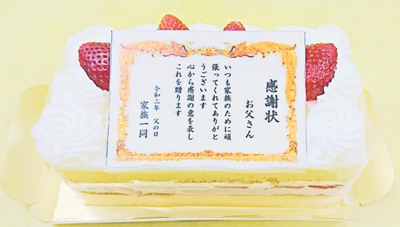 感謝状
お父さん
いつも家族のために頑
張ってくれてありがと
うございます
心から感謝の意を表し
これを贈ります
令和二年 父の日
家族一同